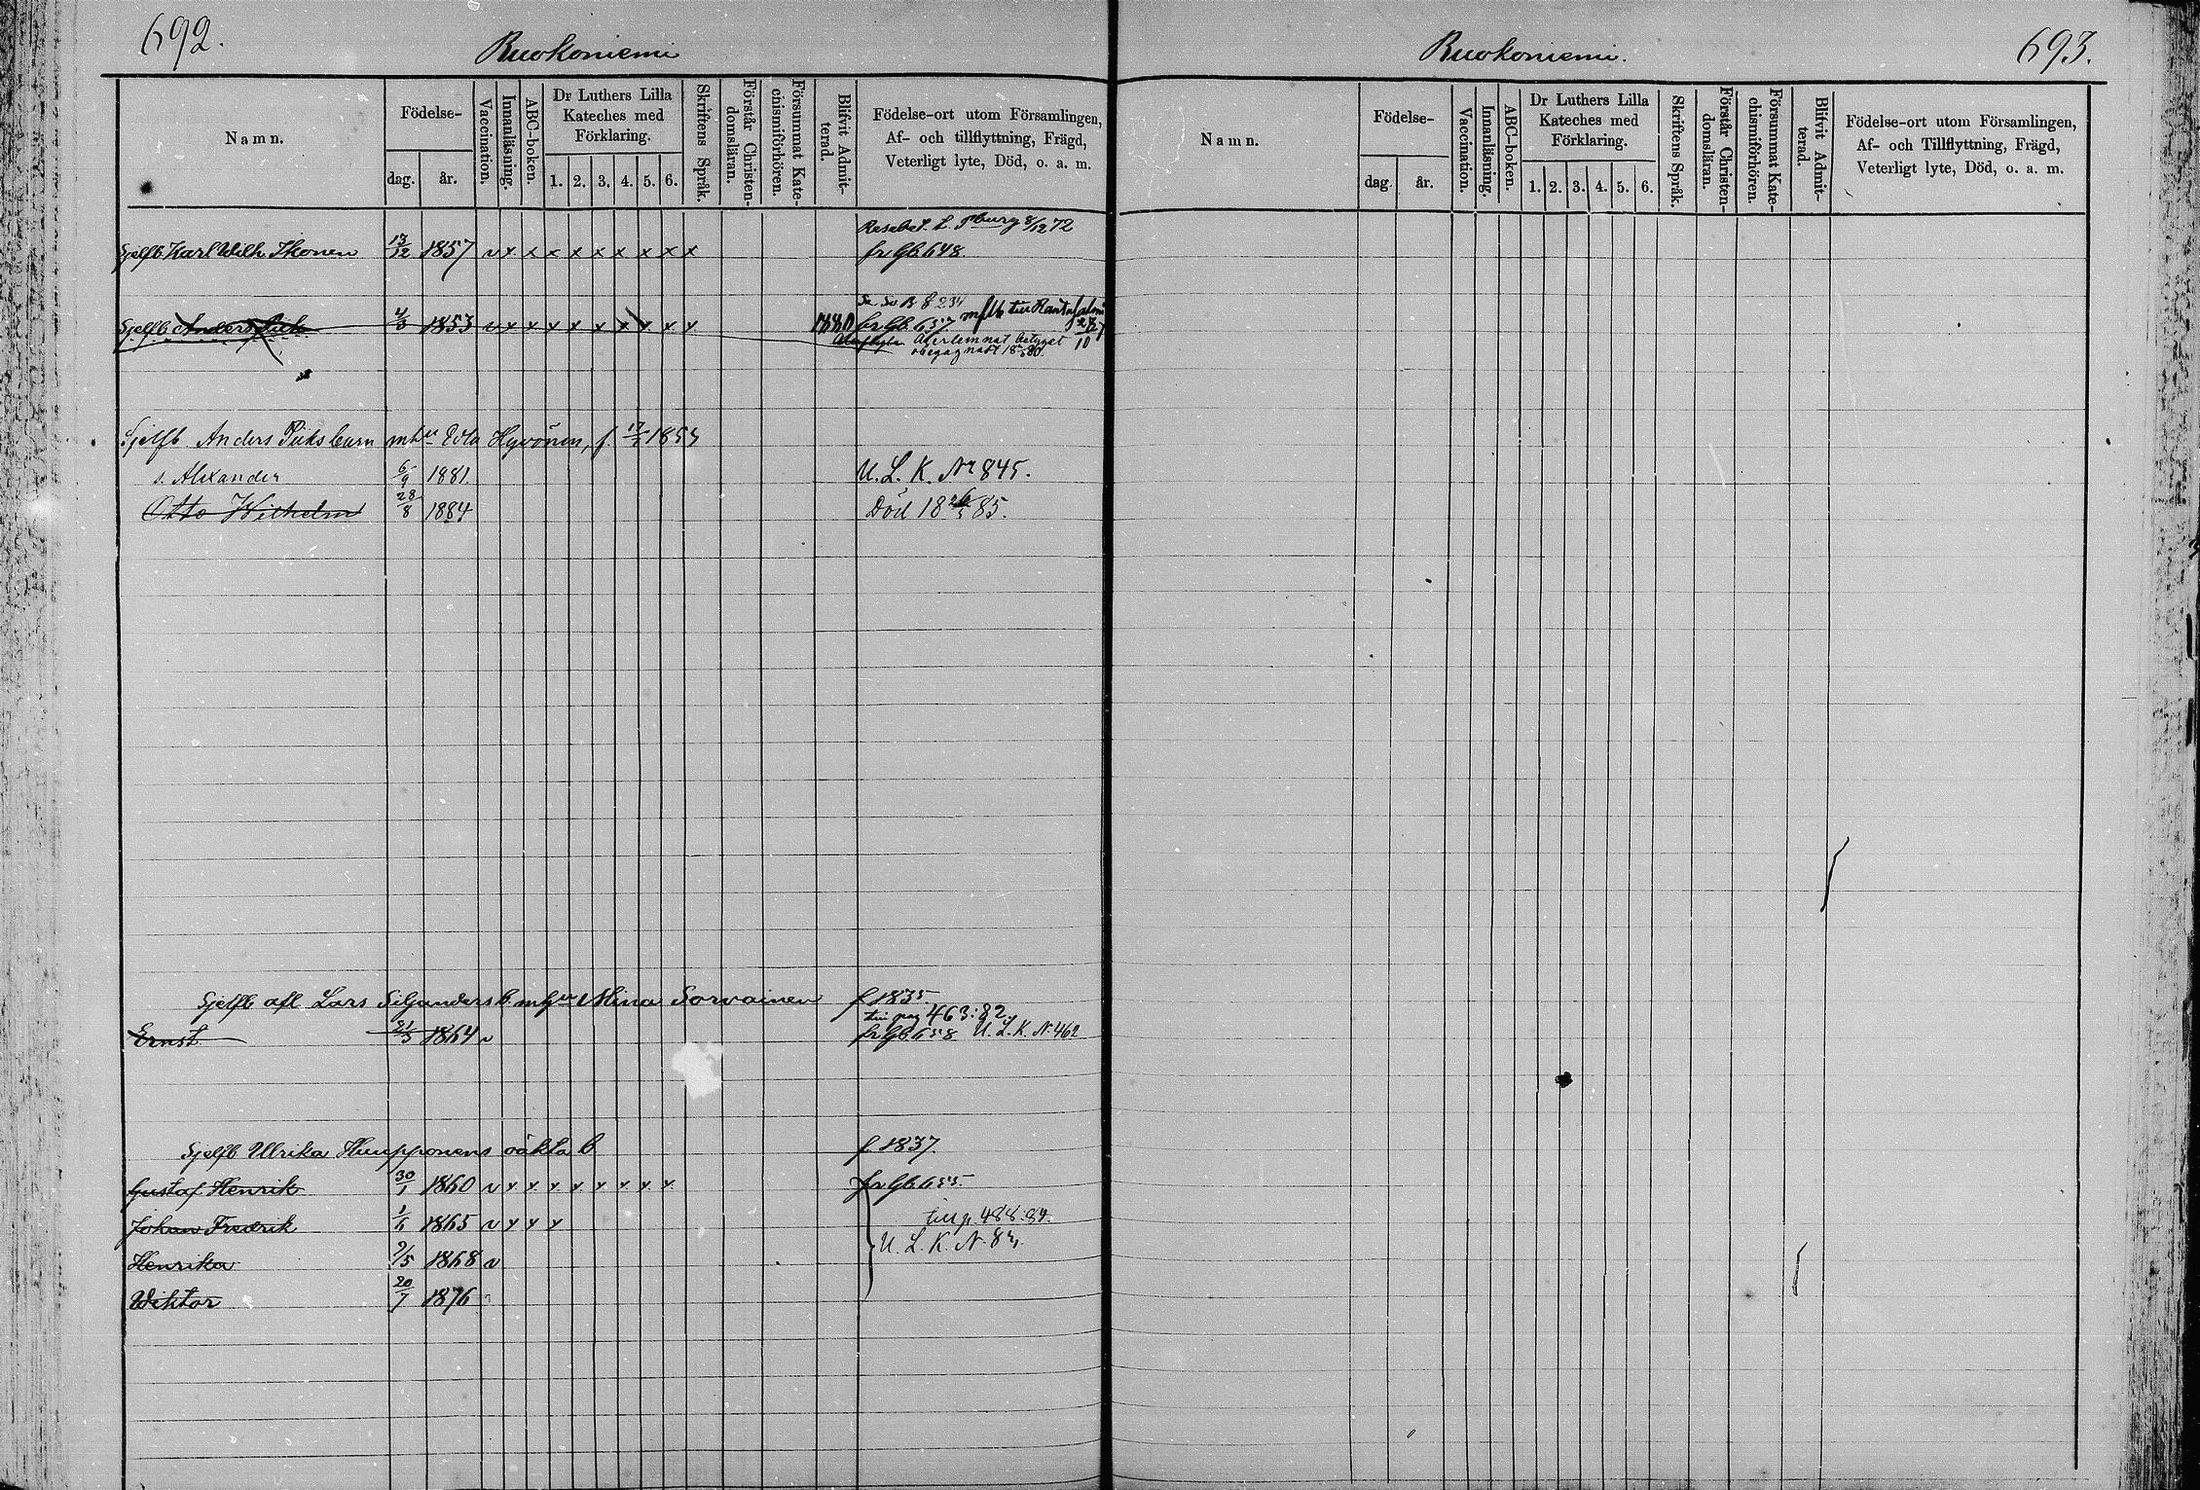 692.
Ruokoniemi
Namn.
Födelse-
dag.
år.
Vaccination.
Innanläsning.
ABC-boken.
Dr Luthers Lilla
Kateches med
Förklaring.
1. 2. 3. 4. 5. 6.
Skriftens Språk.
Förstår Christen-
domsläran.
Försummat Kate-
chismiförhören.
Blifvit Admit-
terad.
Födelse-ort utom Församlingen,
Af- och tillflyttning, Frägd,
Veterligt lyte, Död, o. a. m.
8/12 72
Sjelfb. Karl Wilh. Ikonen 13/12 1857 v x x x x x x x x x fr Gb. 648.
Sjelfb Anders 4/3 1853 v x x x x x x x x x 1880 fr Gb. 657
Återlemnat betyget
obegagnadt
Sjelfb Anders Piiks barn m hu Eva Hyvönen, f.
s. Alexander 6/9 1881 U. L. K. No 845.
Otto Wilhelm 28/8 1884 Död 18 85.
Sjelfb afl. Lars b. m hu Mina Sorvainen f 1835
463:82.
Ernst 21/3 1864 v fr Gb. 658 U. L. K. N. 462
Sjelfb Ulrika Huupponens oäkta b f. 1837.
Gustaf Henrik 30/1 1860 v x x x x x x x x fr Gb. 655.
Johan Fredrik 1/6 1865 v x x x till p. 488:89.
U. L. K. N.
Henrika 9/5 1868 v
Wiktor 20/7 1876
Ruokoniemi.
693.
Namn.
Födelse-
dag.
år.
Vaccination.
Innanläsning.
ABC-boken.
Dr Luthers Lilla
Kateches med
Förklaring.
1. 2. 3. 4. 5. 6.
Skriftens Språk.
Förstår Christen-
domsläran.
Försummat Kate-
chismiförhören.
Blifvit Admit-
terad.
Födelse-ort utom Församlingen,
Af- och Tillflyttning, Frägd,
Veterligt lyte, Död, o. a. m.